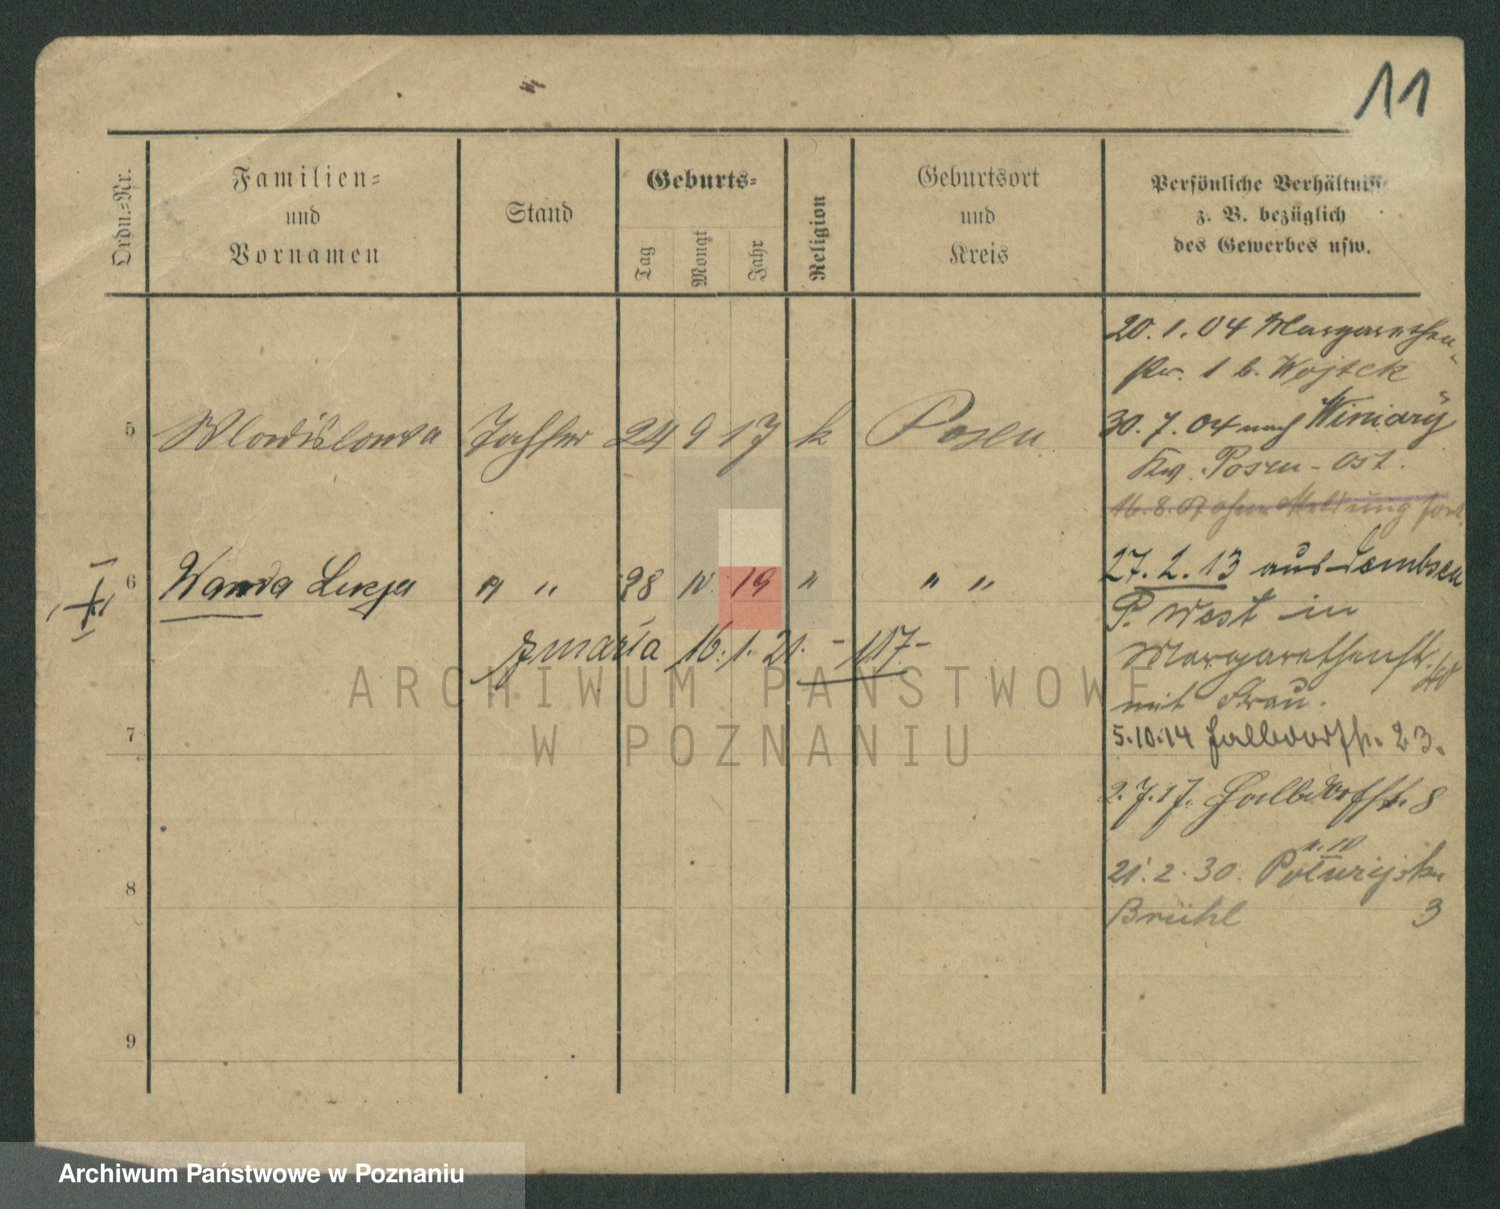 11
Ordn.-Nr.
Familien-
und
Vornamen
Stand
Geburts-
Tag
Monat
Jahr
Religion
Geburtsort
und
Kreis
Persönliche Verhältnisse
z. B. bezüglich
des Gewerbes usw.
20. 1. 04 Margarethen-
str. 1 b. Wojtek
5 Wladislawa Tochter 24 9 17 k Posen
30. 7. 04 nach Winiary
Krs. Posen-Ost.
16. 8. 07 ohne Meldung fort
6 Wanda " " 28 IV 19 " " "
27. 2. 13 aus
P. West in
Margarethenstr.
mit Frau.
maria 16. 1. 21. - 117-
7
5.10.14 Halbdorfstr. 23.
2. 7. 17. Halbdorfstr. 8
8
21. 2. 30.
Brühl 3
9
ARCHIWUM PAŃSTWOWE
W POZNANIU
Archiwum Państwowe w Poznaniu